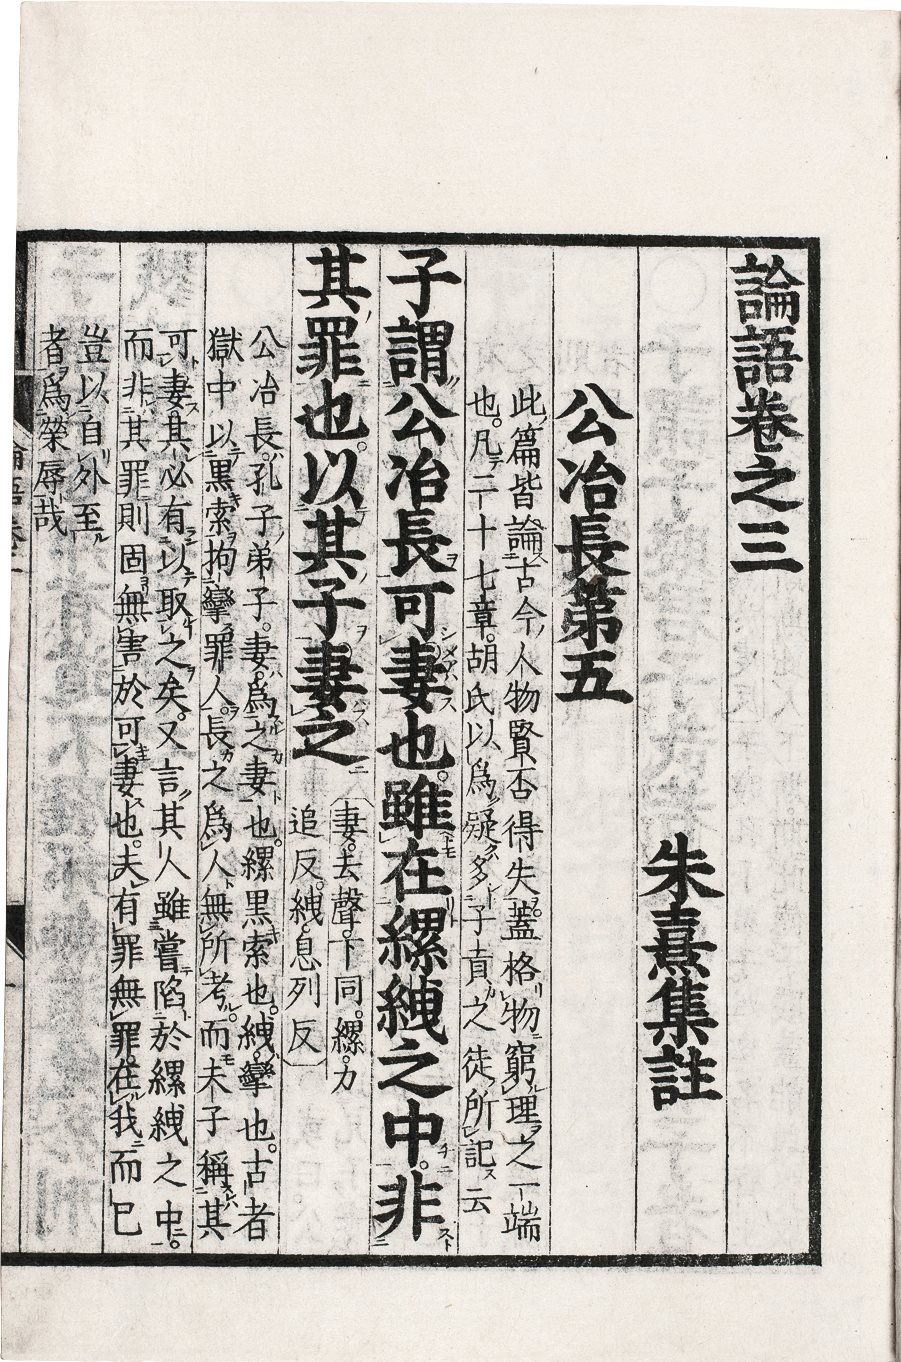 論語卷之三
朱熹集註
公冶長第五
此篇皆論古今人物賢否得失蓋格物窮理之一端
也。凡二十七章。胡氏以爲疑多子貢之徒所記云
子謂公冶長可妻也。雖在縲絏之中。非
其罪也。以其子妻之
妻。去聲。下同。縲。力
追反。絏。息列反
公冶長。孔子弟子。妻。爲之妻也。縲黑索也。絏。攣也。古者
獄中以黑索拘攣罪人。長之爲人無所考。而夫子稱其
可妻。其必有以取之矣。又言其人雖嘗陷於縲絏之中。
而非其罪則固無害於可妻也。夫有罪無罪。在我而已
豈以自外至
者爲榮辱哉